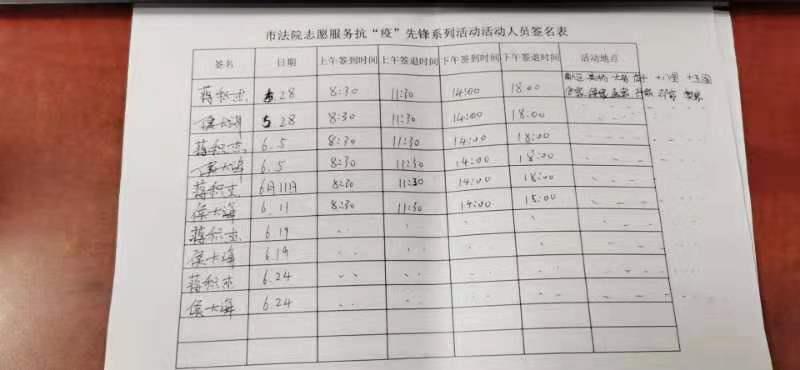 市法院志愿服务抗“疫”先锋系列活动活动人员签名表
签名 日期 上午签到时间 上午签退时间 下午签到时间 下午签退时间 活动地点
蒋积杰 5 28 8:30 11:30 14:00 18:00
侯大海 5 28 8:30 11:30 14:00 18:00
蒋积杰 6.5 8:30 11:30 14:00 18:00
侯大海 6.5 8:30 11:30 14:00 18:00
蒋积杰 6月11日 8:30 11:30 14:00 18:00
侯大海 6.11 8:30 11:30 14:00 18:00
蒋积杰 6.19
侯大海 6.19
蒋积杰 6.24
侯大海 6.24